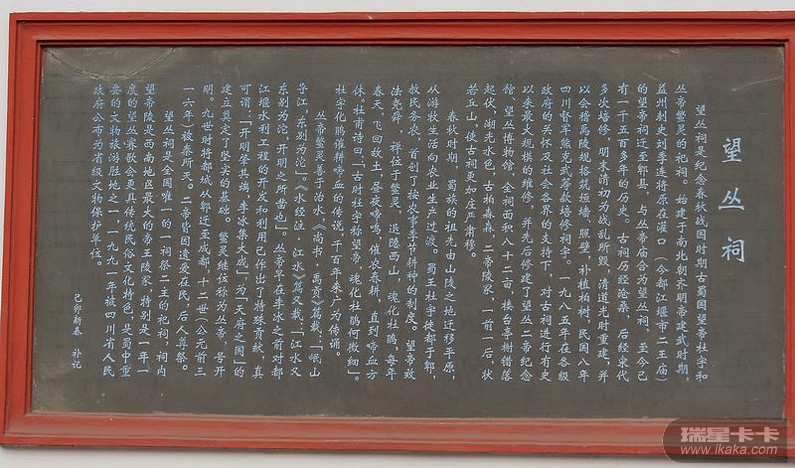 望丛祠
望丛祠是纪念春秋战国时期古蜀国望帝杜宇和
丛帝鳖灵的祀祠。始建于南北朝齐明帝建武时期，
益州刺史刘季连将原在灌口（今都江堰市二王庙）
的望帝祠迁至郫县，与丛帝庙合为望丛祠，至今已
有一千五百多年的历史。古祠历经沧桑，后经宋代
多次培修，明末清初为战乱所毁，清道光时重建，并
以会稽禹陵规格筑垣墙、照壁，补植柏树，民国八年
四川督军熊克武筹款培修祠宇。一九八五年在各级
政府的关怀及社会各界的支持下，对古祠进行有史
以来最大规模的维修，并先后修建了望丛二帝纪念
馆、望丛博物馆，全祠面积八十二亩，楼台亭榭错落
起伏，湖光水色，古柏森森，二帝陵冢，一前一后，状
若丘山，使古祠更加庄严肃穆。
春秋时期，蜀族的祖先由山陵之地迁移平原，
从游牧生活向农业生产过渡。蜀王杜宇徙都于郫，
教民务农，首创了按农事季节耕种的制度。望帝效
法尧舜，禅位于鳖灵，退隐西山，魂化杜鹃，每年
春天，飞回故土，昼夜啼鸣，催农春耕，直到啼血方
休。杜甫诗曰：“古时杜宇称望帝，魂化杜鹃何微细”。
杜宇化鹃催耕啼血的传说，千百年来广为传诵。
丛帝鳖灵善于治水，《尚书·禹贡》篇载：“岷山
导江，东别为沱”。《水经注·江水》篇又载：“江水又
东别为沱，开明之所凿也”。丛帝早在李冰之前对都
江堰水利工程的开发和利用已作出了特殊贡献，真
可谓：“开明肇其端，李冰集大成”，为“天府之国”的
建立奠定了坚实的基础。鳖灵继位称为丛帝，号开
明。九世时将都城从郫迁至成都，十二世（公元前三
一六年）被秦所灭。二帝皆因遗爱在民，后人尊祭。
望丛祠是全国唯一的一祠祭二主的祀祠，祠内
望帝陵是西南地区最大的帝王陵冢，特别是一年一
度的望丛赛歌会更具传统民俗文化特色，是蜀中重
要的文物旅游胜地之一，一九九一年被四川省人民
政府公布为省级文物保护单位。
己卯新春 补记
瑞星卡卡
www.ikaka.com